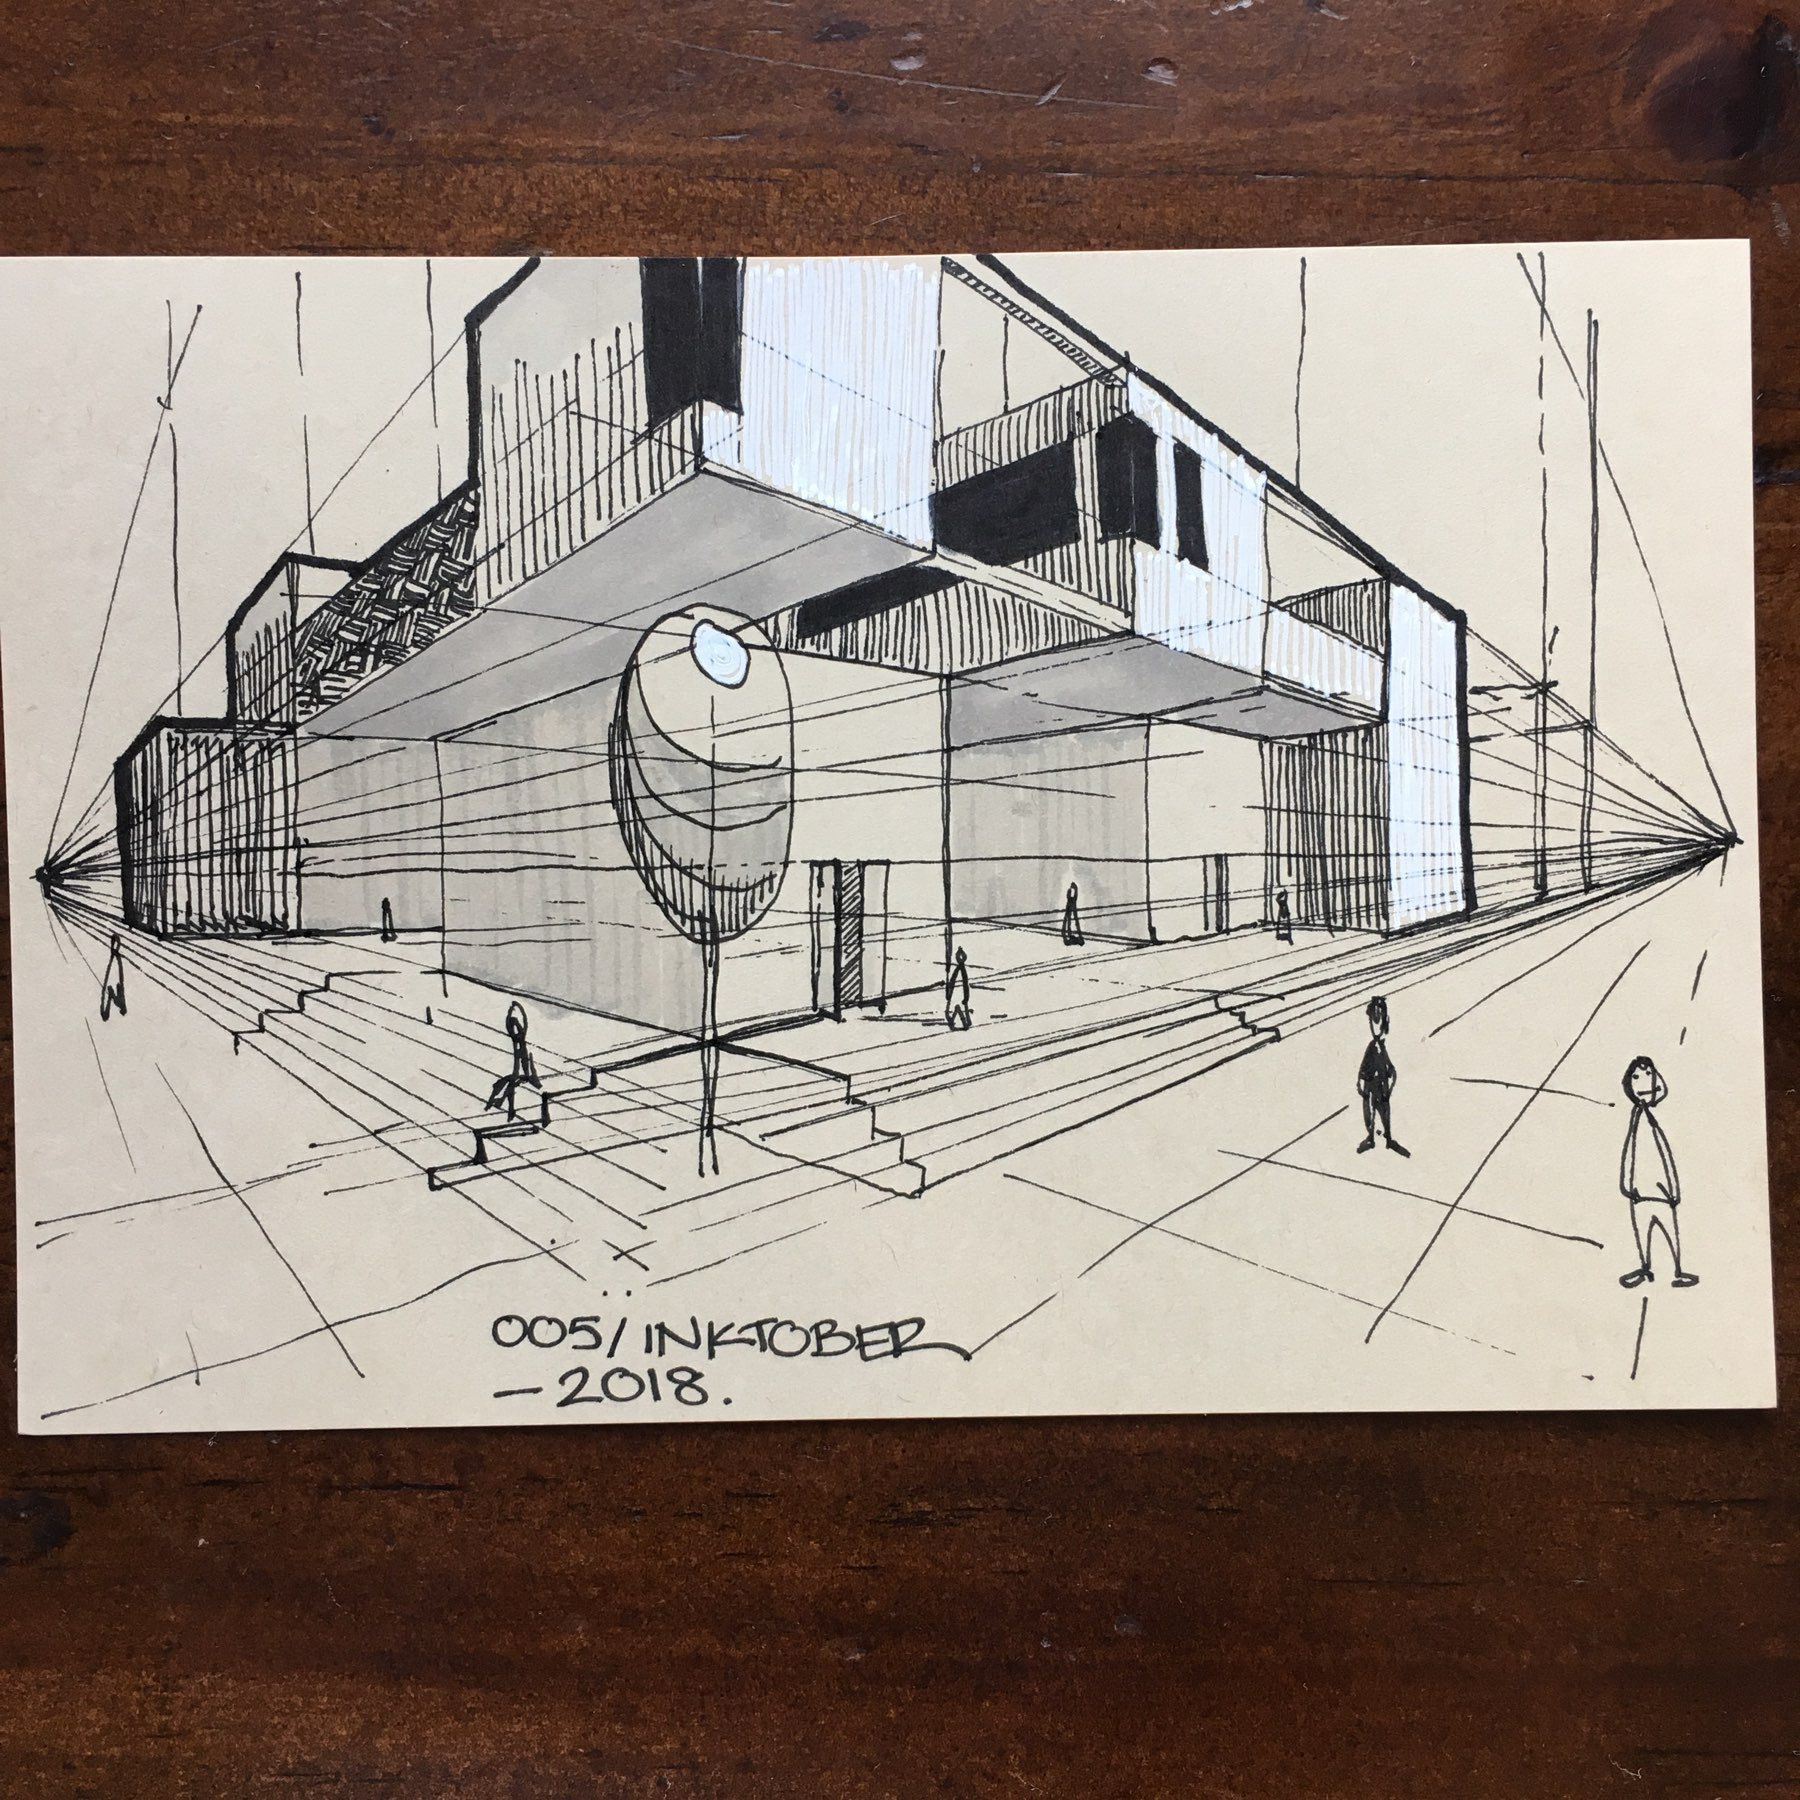 005/INKTOBER
-2018.